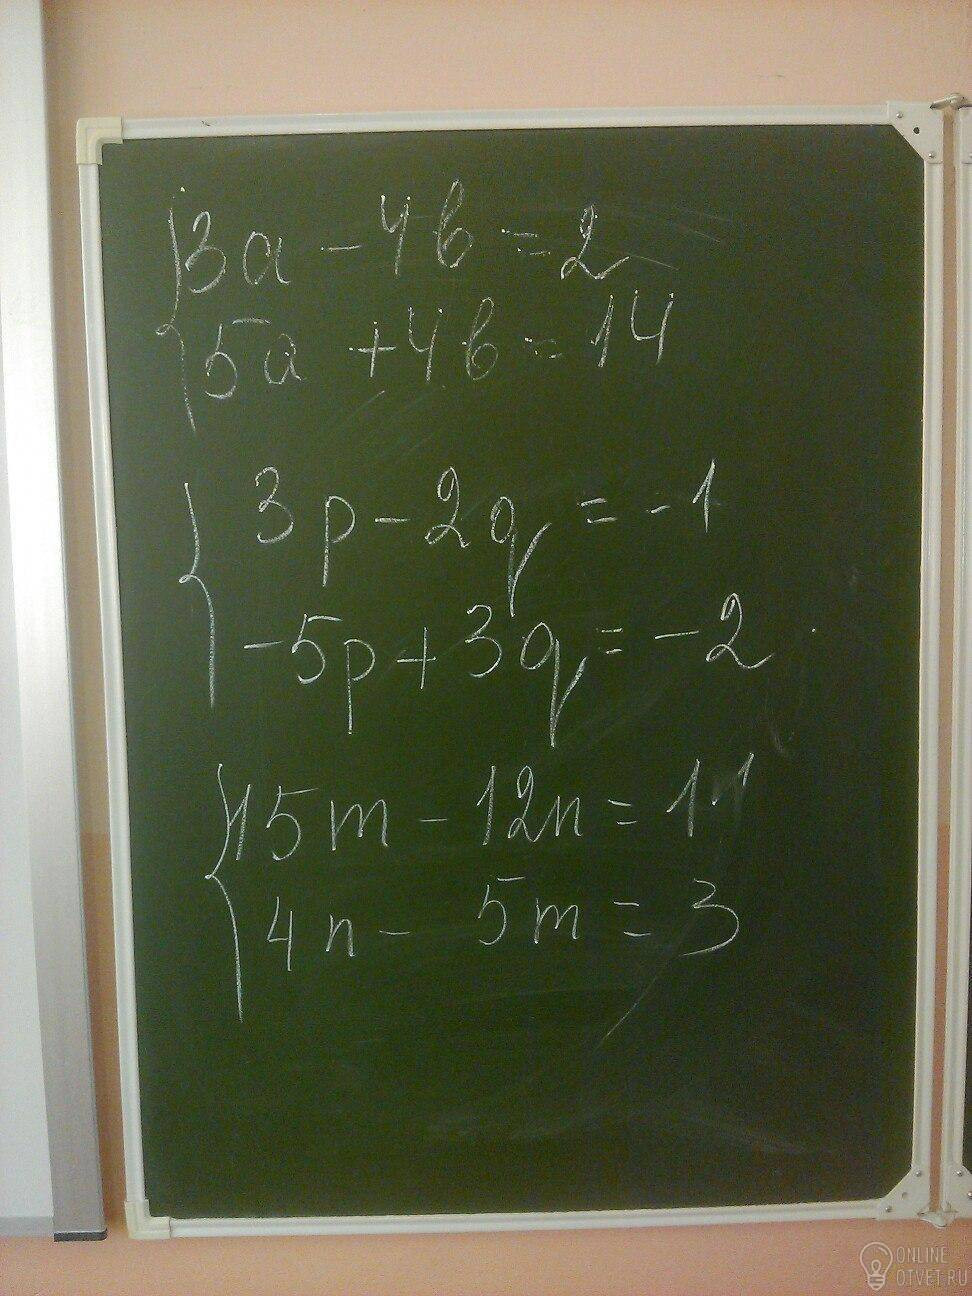 3a - 4b = 2
5a + 4b = 14
3p - 2q = -1
-5p + 3q = -2
15m - 12n = 11
4n - 5m = 3
ONLINE
OTVET.RU